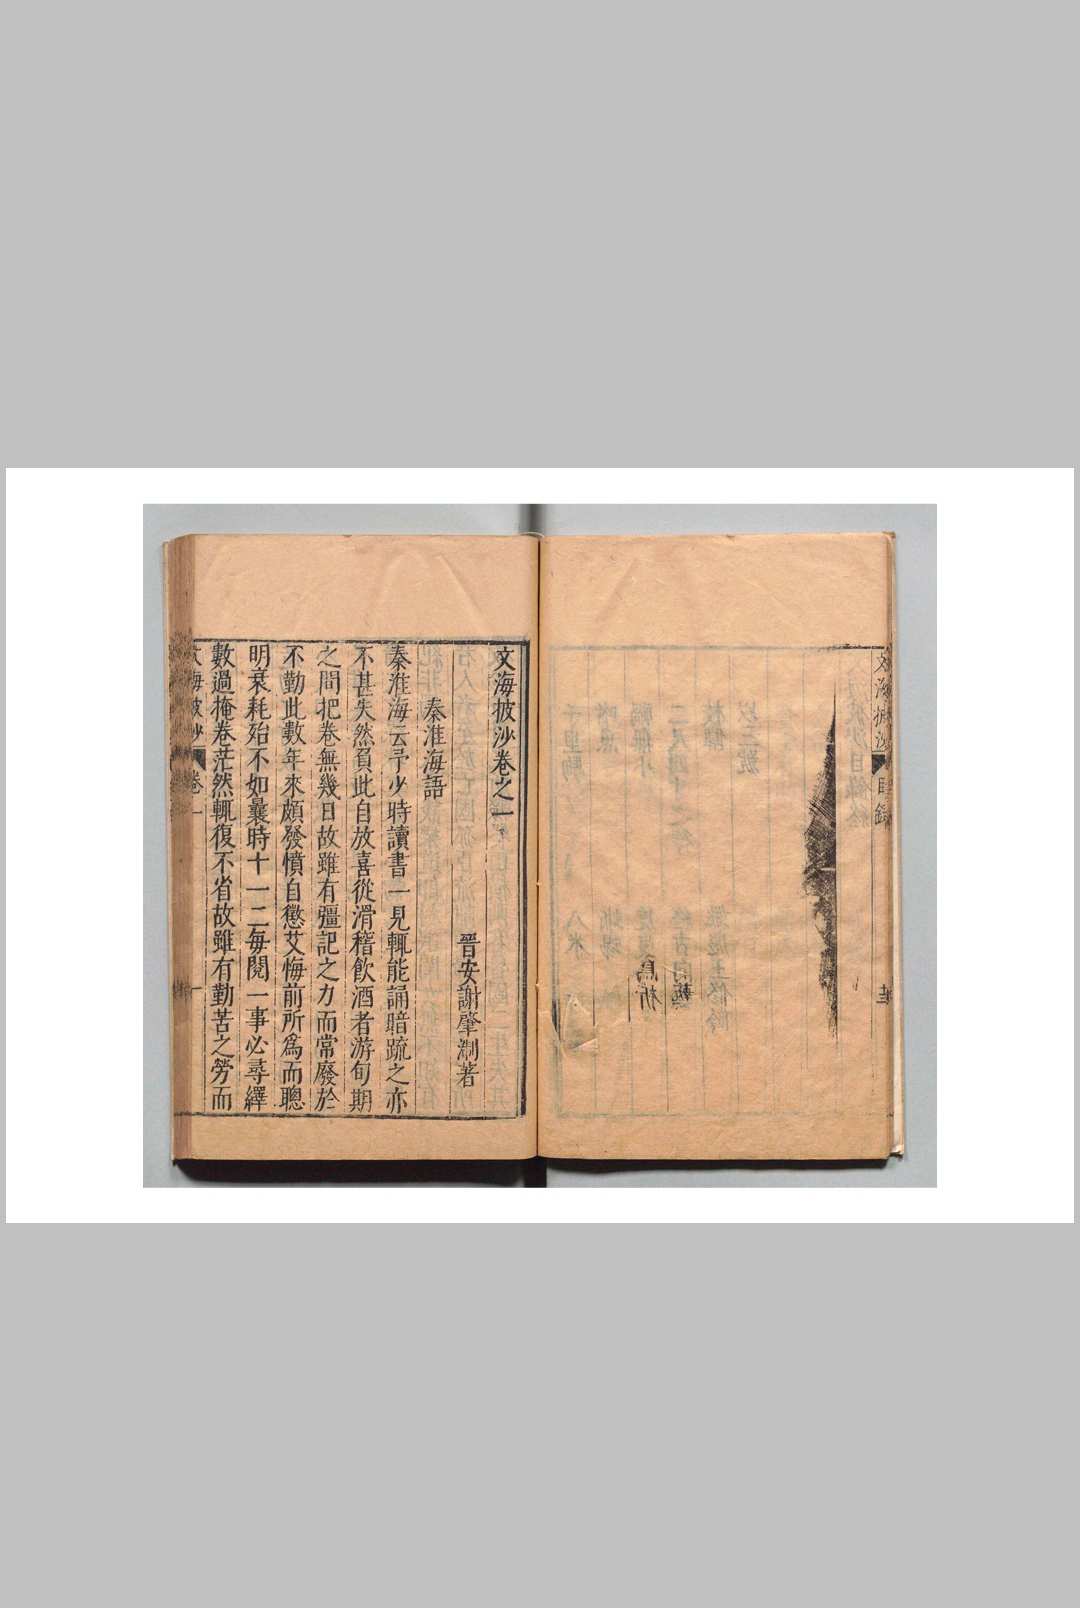 文海披沙
目錄
文海披沙卷之一
晉安謝肇淛著
秦淮海語
秦淮海云予少時讀書一見輒能誦暗疏之亦
不甚失然負此自放喜從滑稽飲酒者游旬朞
之間把卷無幾日故雖有彊記之力而常廢於
不勤此數年來頗發憤自懲艾悔前所爲而聰
明衰耗殆不如曩時十一二每閱一事必尋繹
數過掩卷茫然輒復不省故雖有勤苦之勞而
文海披沙 卷一 一